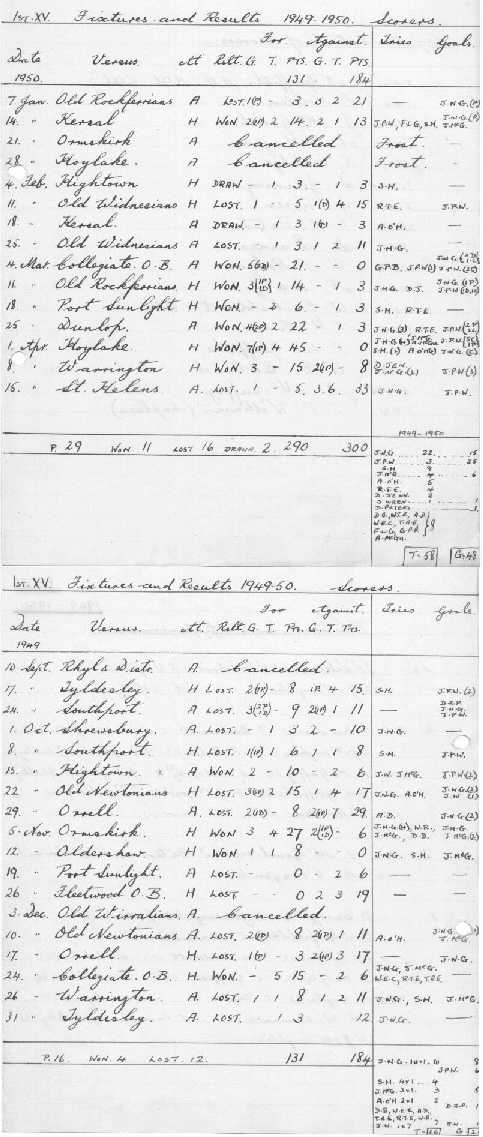 1ST. XV. Fixtures and Results 1949-1950. Scorers.
For Against Tries Goals.
Date Versus. At Rslt. G. T. PTS. G. T. PTS.
1950. 131 184
7 Jan. Old Rockferrians A LOST. 1(P) - 3. 3 2 21 — J.N.G.(P)
14. " Kersal H WON 2(P) 2 14. 2 1 13 J.P.W, F.L.G, S.H. J.N.G.(P) J.McG.
21. " Ormskirk A Cancelled Frost. —
28. " Hoylake. A Cancelled Frost. —
4. Feb. Hightown H DRAW - 1 3. - 1 3 S.H. —
11. " Old Widnesians H LOST. 1 - 5 1(P) 4 15 R.T.E. J.P.W.
18. " Kersal. A DRAW. - 1 3 1(P) - 3 A.O'H. —
25. " Old Widnesians A LOST. - 1 3 1 2 11 J.N.G. —
4. Mar. Collegiate. O.B. A WON. - 21. - - 0 G.P.B. J.P.W
11. " Old Rockferrians. H WON. 3 1 14 - 1 3 J.N.G. D.S.
18. " Port Sunlight H WON. - 2 6 - 1 3 S.H. R.T.E —
25 " Dunlop. A WON. 4(P) 2 22 - 1 3 R.T.E. J.P.W
1. Apr. Hoylake H WON. 7(P) 4 45 - - 0
8. " Warrington H WON. 3 - 15 2(P) - 8 D. JEN. J.N.G.(2) J.P.W(3)
15. " St. Helens A. LOST. 1 - 5. 3. 6. 33 J.N.G. J.P.W.
1949-1950
P. 29 WON 11 LOST 16 DRAWN. 2. 290 300
J.N.G 22 15
J.P.W 3 25
S.H 9
J.McG 4 6
A.O'H 5
R.T.E. 4
D. JEN. 2
T-58 G-48
1ST. XV. Fixtures and Results 1949-50. Scorers.
For Against. Tries Goals.
Date Versus. At. Rslt. G. T. Pts. G. T. Pts.
1949
10 Sept. Rhyl & Distr. A Cancelled
17. " Tyldesley. H LOST. 2(P) - 8 1P. 4 15 S.H. J.P.W.(2)
24. " Southport. A LOST. 3 - 9 2(P) 1 11 —
1. Oct. Shrewsbury. A. LOST. - 1 3 2 - 10 J.N.G. —
8. " Southport. H. LOST. 1(P) 1 6 1 1 8 S.H. J.P.W.
15. " Hightown. A WON 2 - 10 - 2 6 J.W. J.McG. J.P.W(2)
22 " Old Newtonians H LOST. 3(P) 2 15 1 4 17 J.N.G. A.O'H. J.N.G.(2) J.W (1)
29. " Orrell A LOST. 2(P) - 8 2(P) 7 29. A.D. J.N.G(2)
5. Nov. Ormskirk. H WON 3 4 27 - 6 J.N.G(4), W.R., J.McG., D.B. J.N.G J.McG.(2)
12. " Aldershaw H WON 1 1 8 - - 0 J.N.G. S.H. J.McG.
19. " Port Sunlight. A LOST. - - 0 - 2 6 — —
26 " Fleetwood O.B. H LOST - - 0 2 3 19 — —
3. Dec. Old Wirralians. A. Cancelled.
10. " Old Newtonians A. LOST. 2(P) 8 2(P) 1 11 A.O'H. J.N.G. J.McG
17. " Orrell. H. LOST. 1(P) - 3 2(P) 3 17 — J.N.G.
24. " Collegiate. O.B. H WON. - 5 15 - 2 6 J.N.G, J.McG. W.E.C, R.T.E, T.R.E. —
26 " Warrington A LOST. 1 1 8 1 2 11 J.N.G., S.H. J.McG.
31 " Tyldesley. A. LOST. 1 3 12 J.N.G. —
P. 16. WON. 4 LOST. 12. 131 184